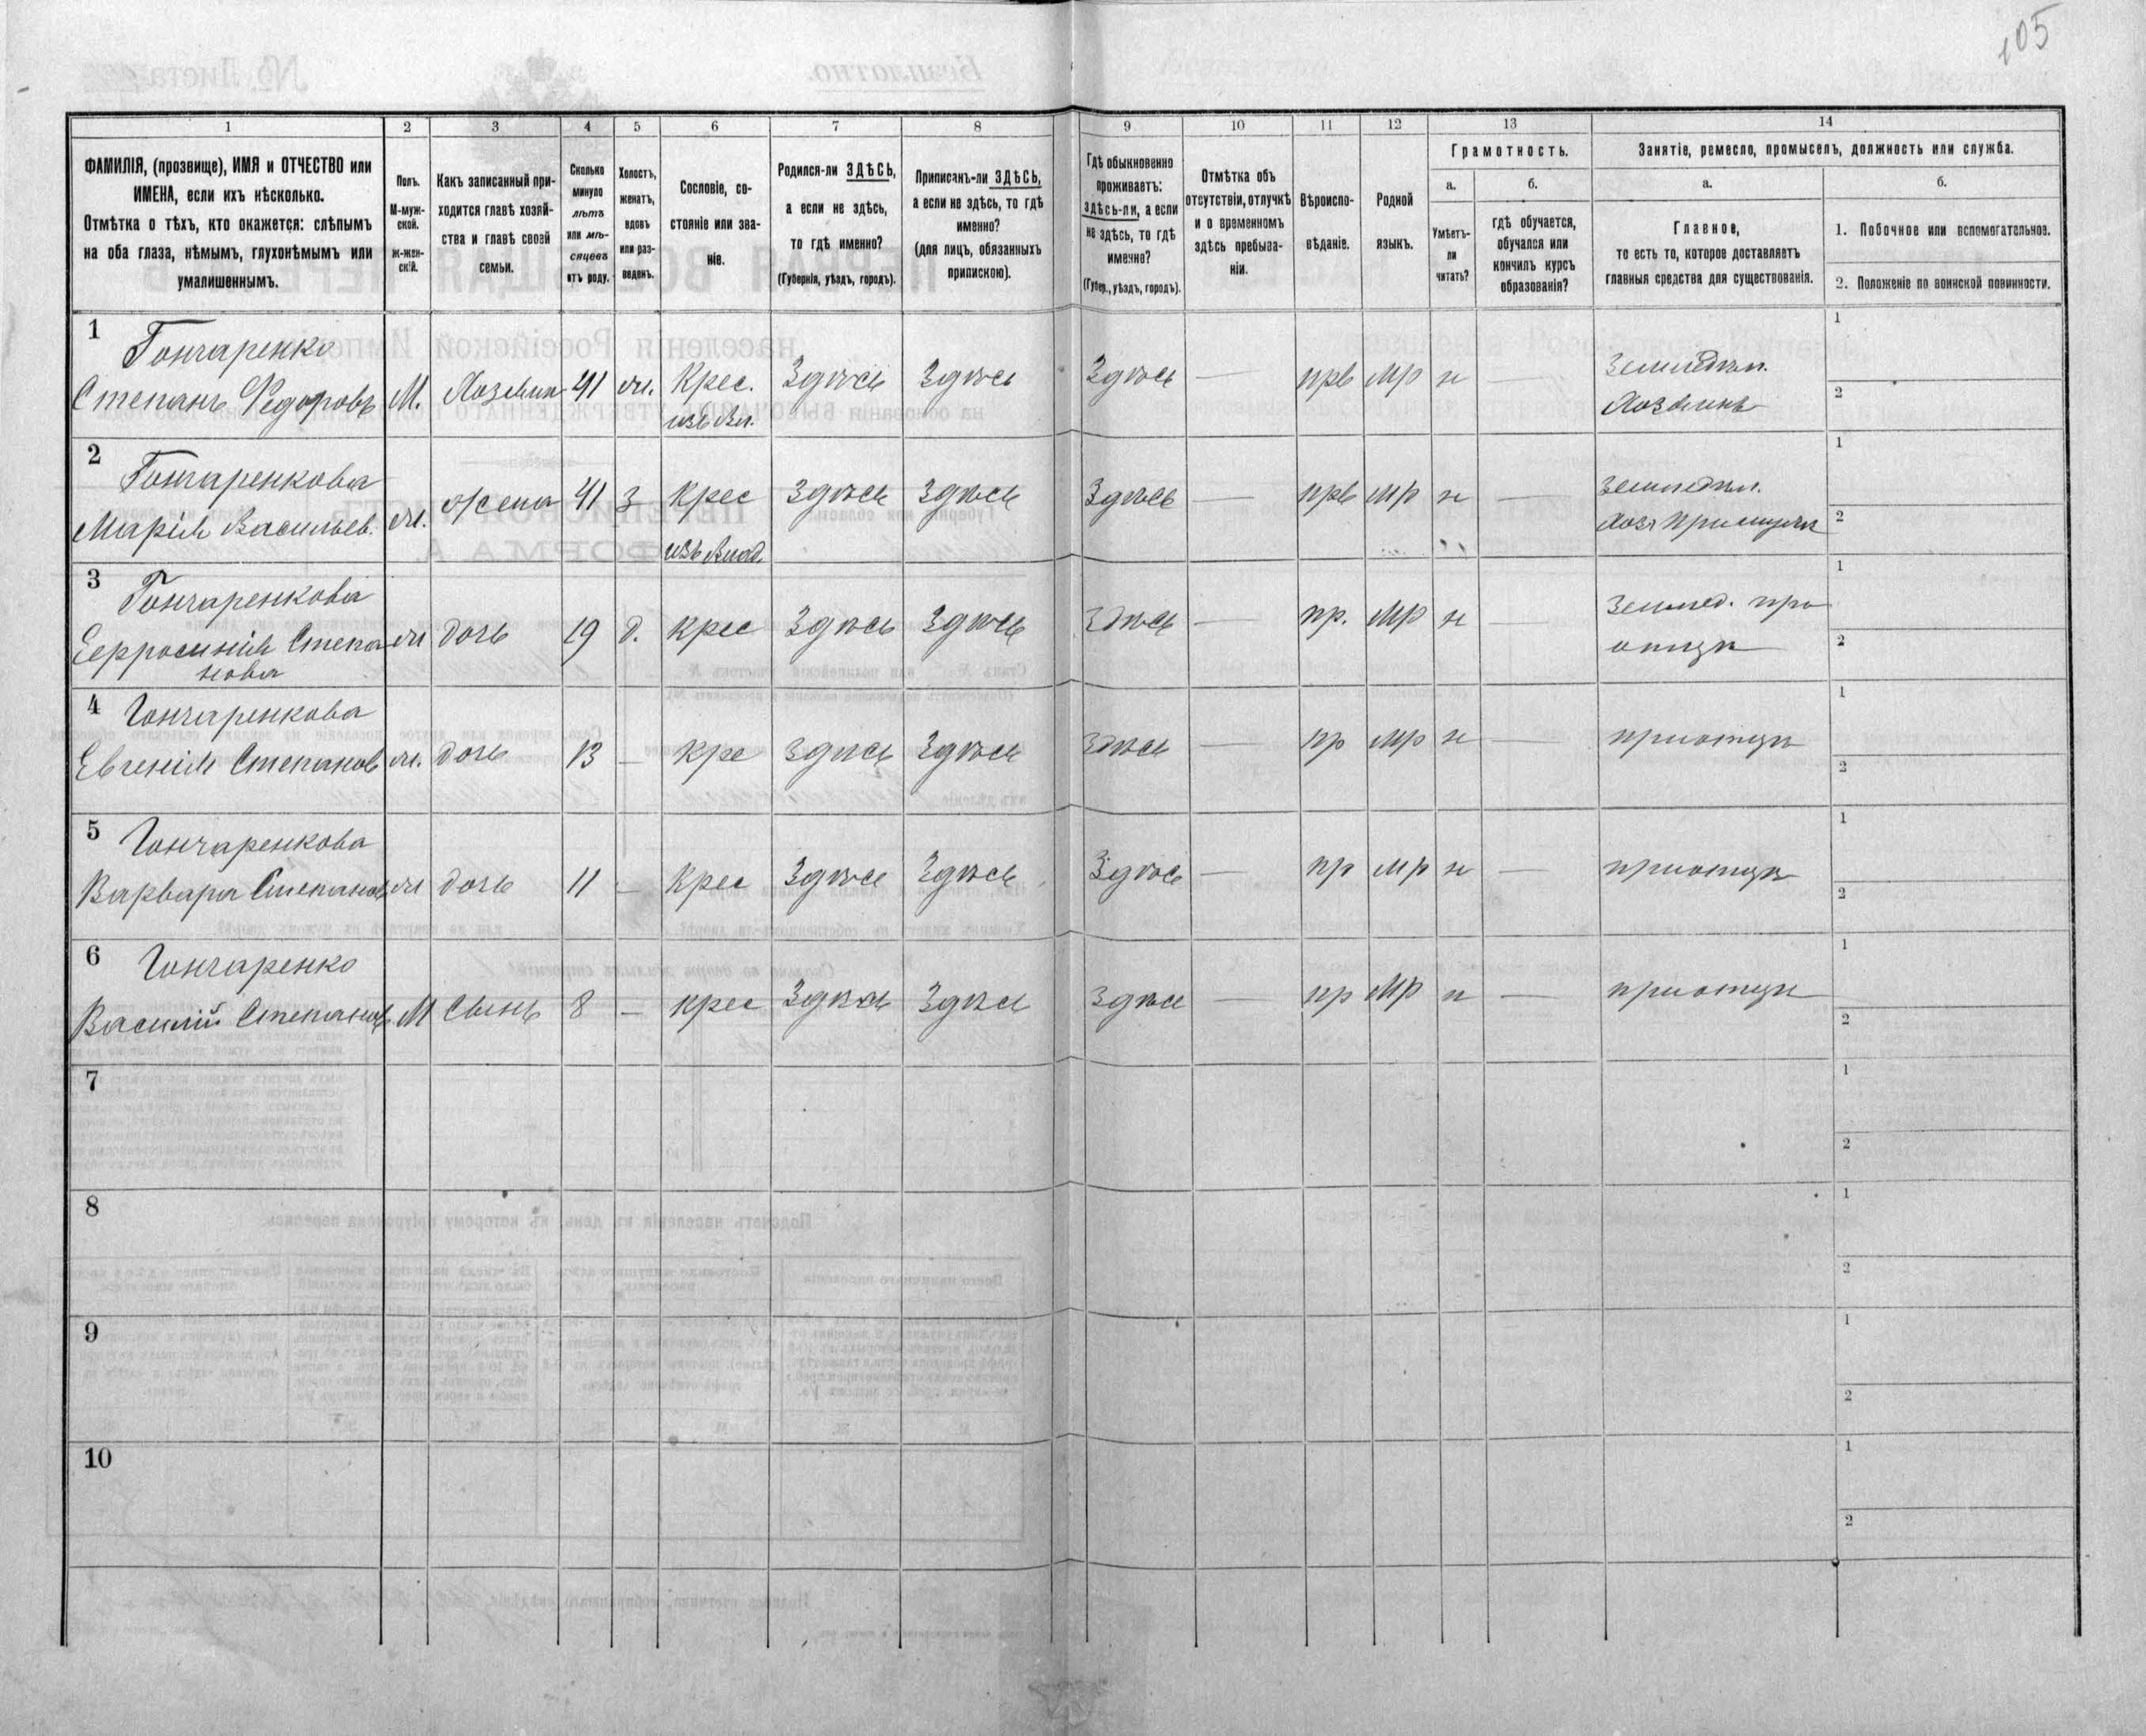 105
1
2
3
4
5
6
7
8
9
10
11
12
13
14
ФАМИЛІЯ, (прозвище), ИМЯ и ОТЧЕСТВО или
ИМЕНА, если ихъ нѣсколько.
Отмѣтка о тѣхъ, кто окажется: слѣпымъ
на оба глаза, нѣмымъ, глухонѣмымъ или
умалишеннымъ.
Полъ.
М-муж-
ской.
ж-жен-
скій.
Какъ записанный при-
ходится главѣ хозяй-
ства и главѣ своей
семьи.
Сколько
минуло
лѣтъ
или мѣ-
сяцевъ
отъ роду.
Холостъ,
женатъ,
вдовъ
или раз-
веденъ.
Сословіе, со-
стояніе или зва-
ніе.
Родился-ли ЗДѢСЬ,
а если не здѣсь,
то гдѣ именно?
(Губернія, уѣздъ, городъ).
Приписанъ-ли ЗДѢСЬ,
а если не здѣсь, то гдѣ
именно?
(для лицъ, обязанныхъ
припискою).
Гдѣ обыкновенно
проживаетъ:
здѣсь-ли, а если
не здѣсь, то гдѣ
именно?
(Губер., уѣздъ, городъ).
Отмѣтка объ
отсутствіи, отлучкѣ
и о временномъ
здѣсь пребыва-
ніи.
Вѣроиспо-
вѣданіе.
Родной
языкъ.
Грамотность.
а.
Умѣетъ-
ли
читать?
б.
гдѣ обучается,
обучался или
кончилъ курсъ
образованія?
Занятіе, ремесло, промыселъ, должность или служба.
а.
Главное,
то есть то, которое доставляетъ
главныя средства для существованія.
б.
1. Побочное или вспомогательное.
2. Положеніе по воинской повинности.
1
Гончаренко
Степанъ Федоровъ М. Хозяинъ 41 ж. Крес. Здѣсь Здѣсь Здѣсь — прв мр н —
изъ вл.
Земледѣл.
Хозяинъ
1
2
2
Гончаренкова
Марія Васильев. ж. жена 41 з Крес Здѣсь Здѣсь Здѣсь — прв мр н —
изъ влад.
Земледѣл.
1
2
3
Гончаренкова
Ефросинія Степа ж дочь 19 д. крес Здѣсь Здѣсь Здѣсь — пр. мр н —
нова
Земпед. при
отцѣ
1
2
4
Гончаренкова
Евгенія Степанов ж. дочь 13 — кре Здѣсь Здѣсь Здѣсь — пр мр н — приотцѣ
1
2
5
Гончаренкова
Варвара Степанов ж дочь 11 — Крес Здѣсь Здѣсь Здѣсь — пр мр н — приотцѣ
1
2
6
Гончаренко
Василій Степанов М Сынъ 8 — крес Здѣсь Здѣсь Здѣсь — пр мр н — приотцѣ
1
2
7
1
2
8
1
2
9
1
2
10
1
2